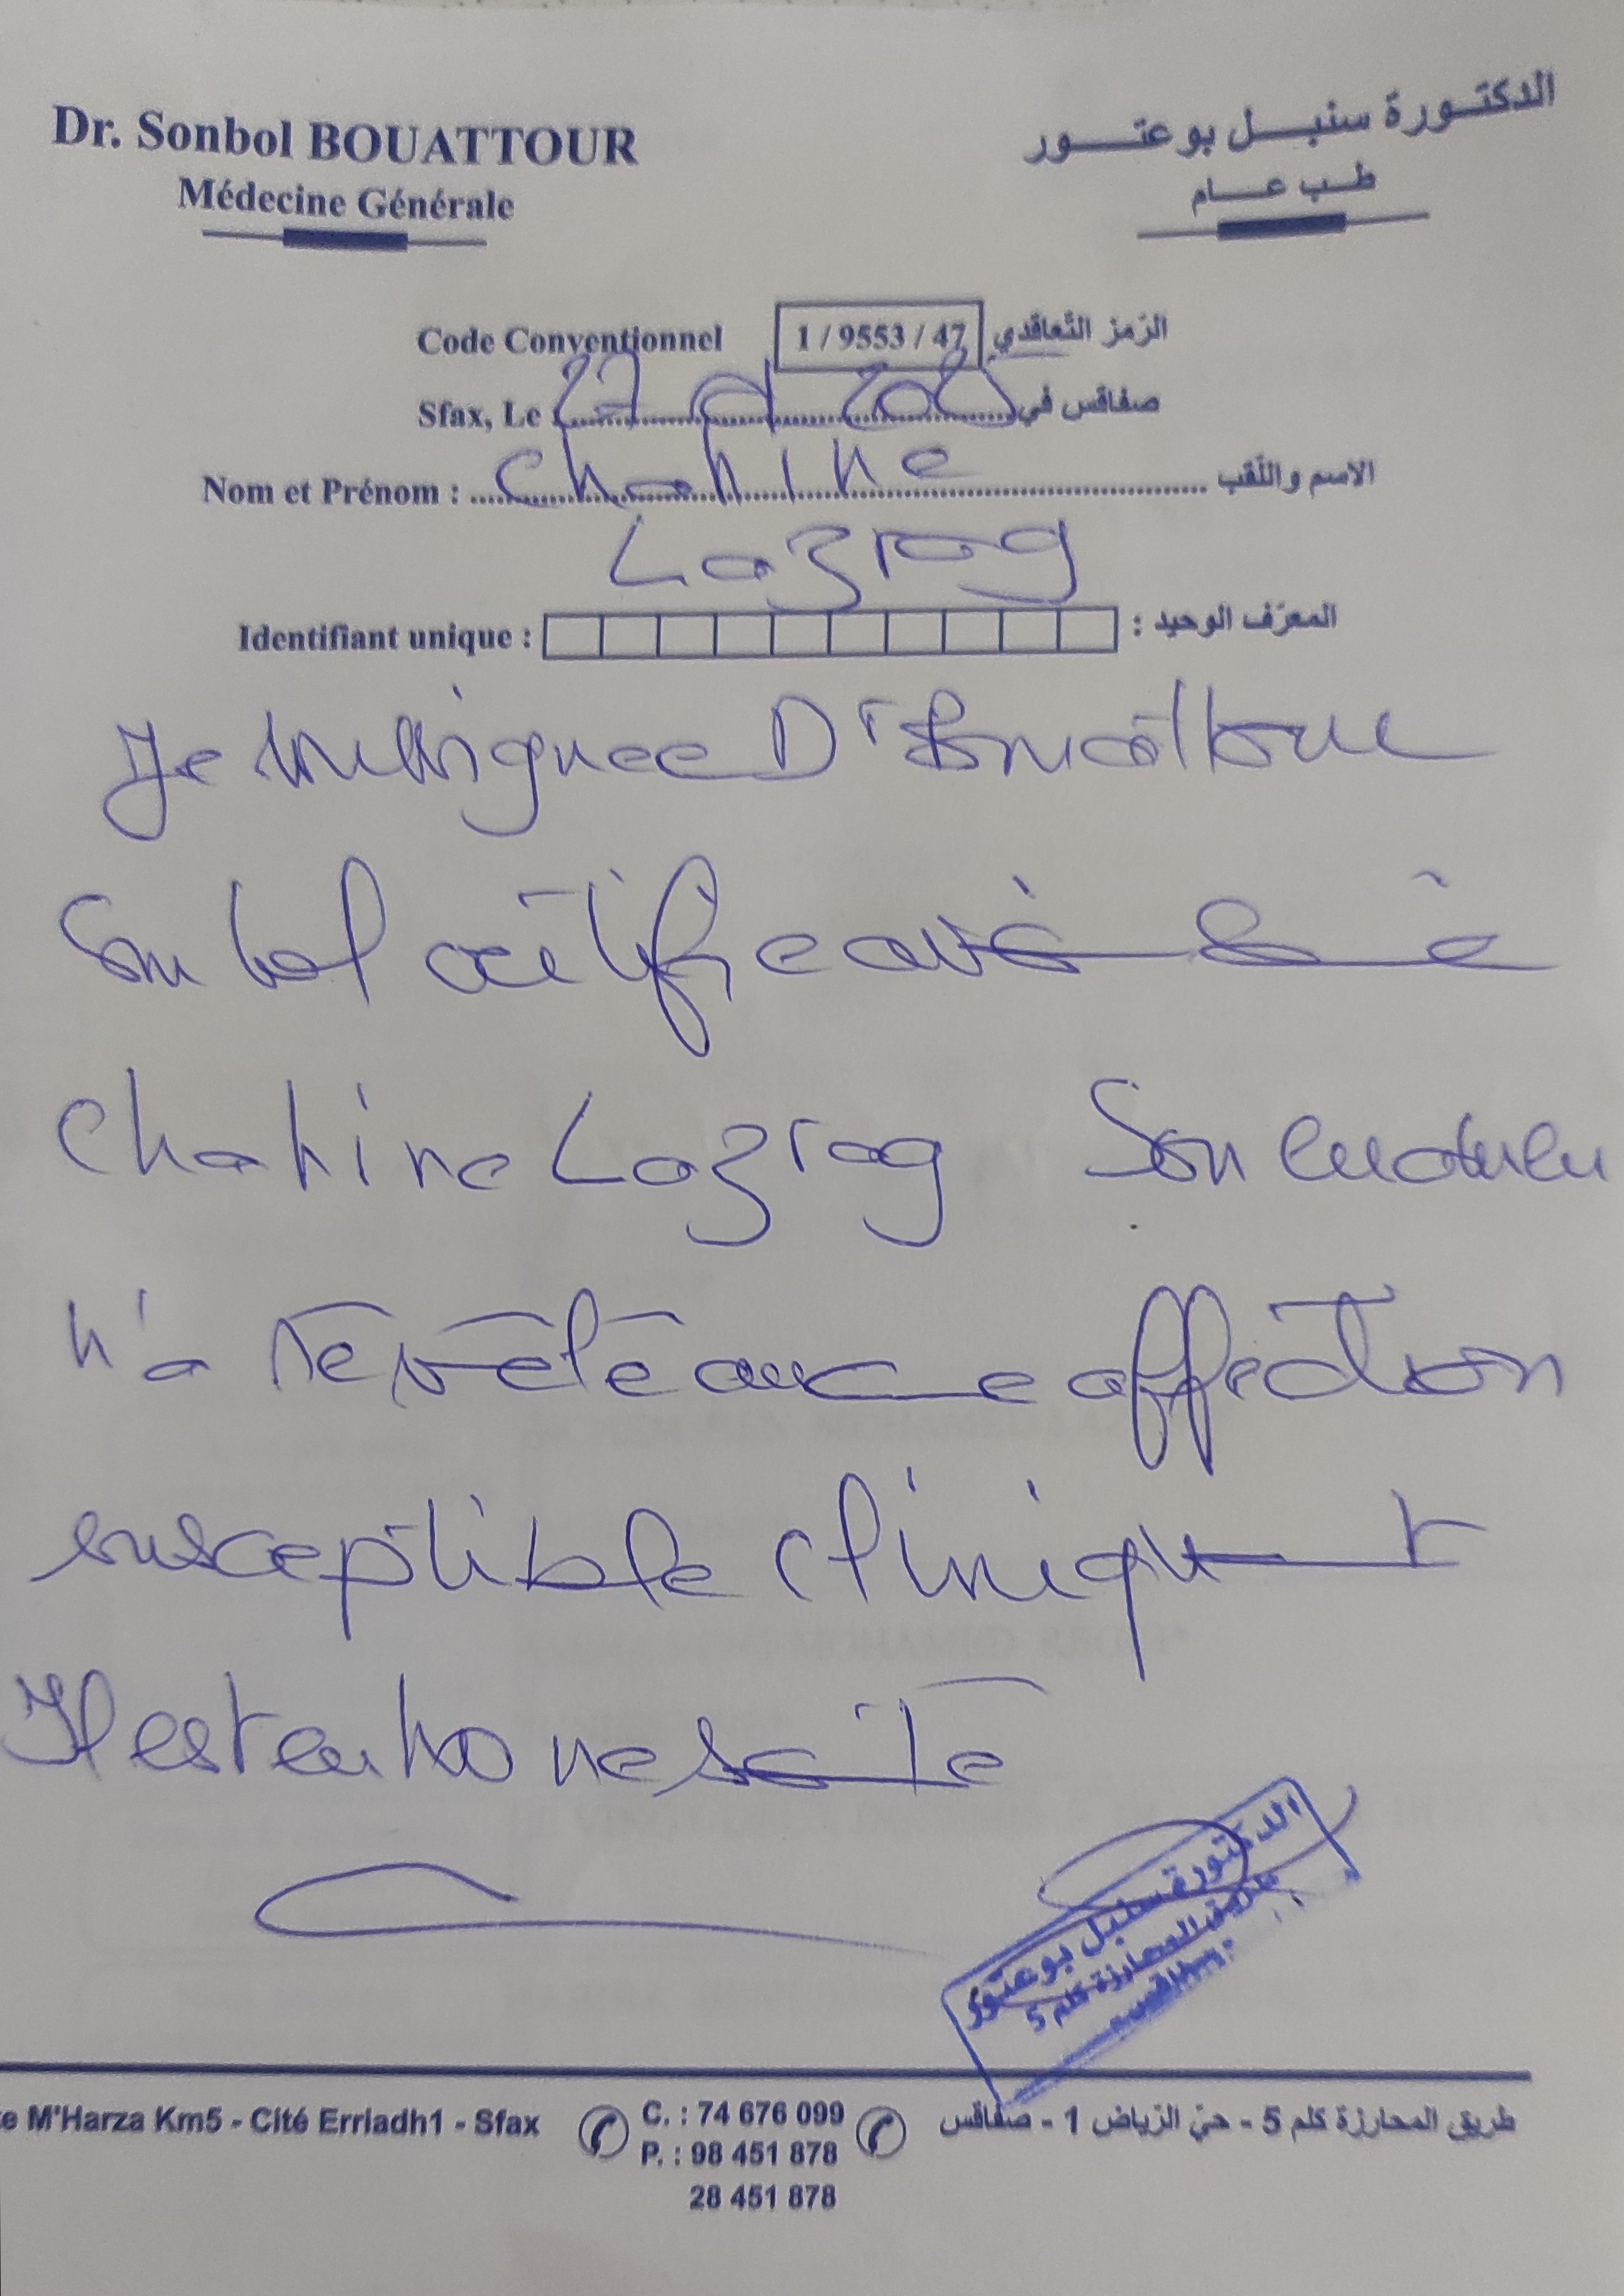 Dr. Sonbol BOUATTOUR
الدكتورة سنبل بوعتور
Médecine Générale
طب عام
Code Conventionnel 1 / 9553 / 47 الرّمز التّعاقدي
Sfax, Le 27 صفاقس في
Nom et Prénom : Chahine الاسم واللّقب
Lazrag
Identifiant unique : المعرّف الوحيد :
Je soussignée Dr Bouattour
Sonbol certifie avoir
Chahine Lazrag Son examen
n'a révélé aucune affection
susceptible cliniquement
Il est en bonne santé
الدكتورة سنبل بوعتور
طريق المحارزة كلم 5
صفاقس
e M'Harza Km5 - Cité Erriadh1 - Sfax
C. : 74 676 099
P. : 98 451 878
28 451 878
طريق المحارزة كلم 5 - حيّ الرّياض 1 - صفاقس